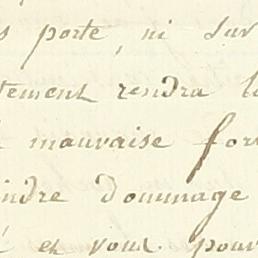 s porte, ni sur
tement rendra l
mauvaise for
indre dommage
é et vous pour